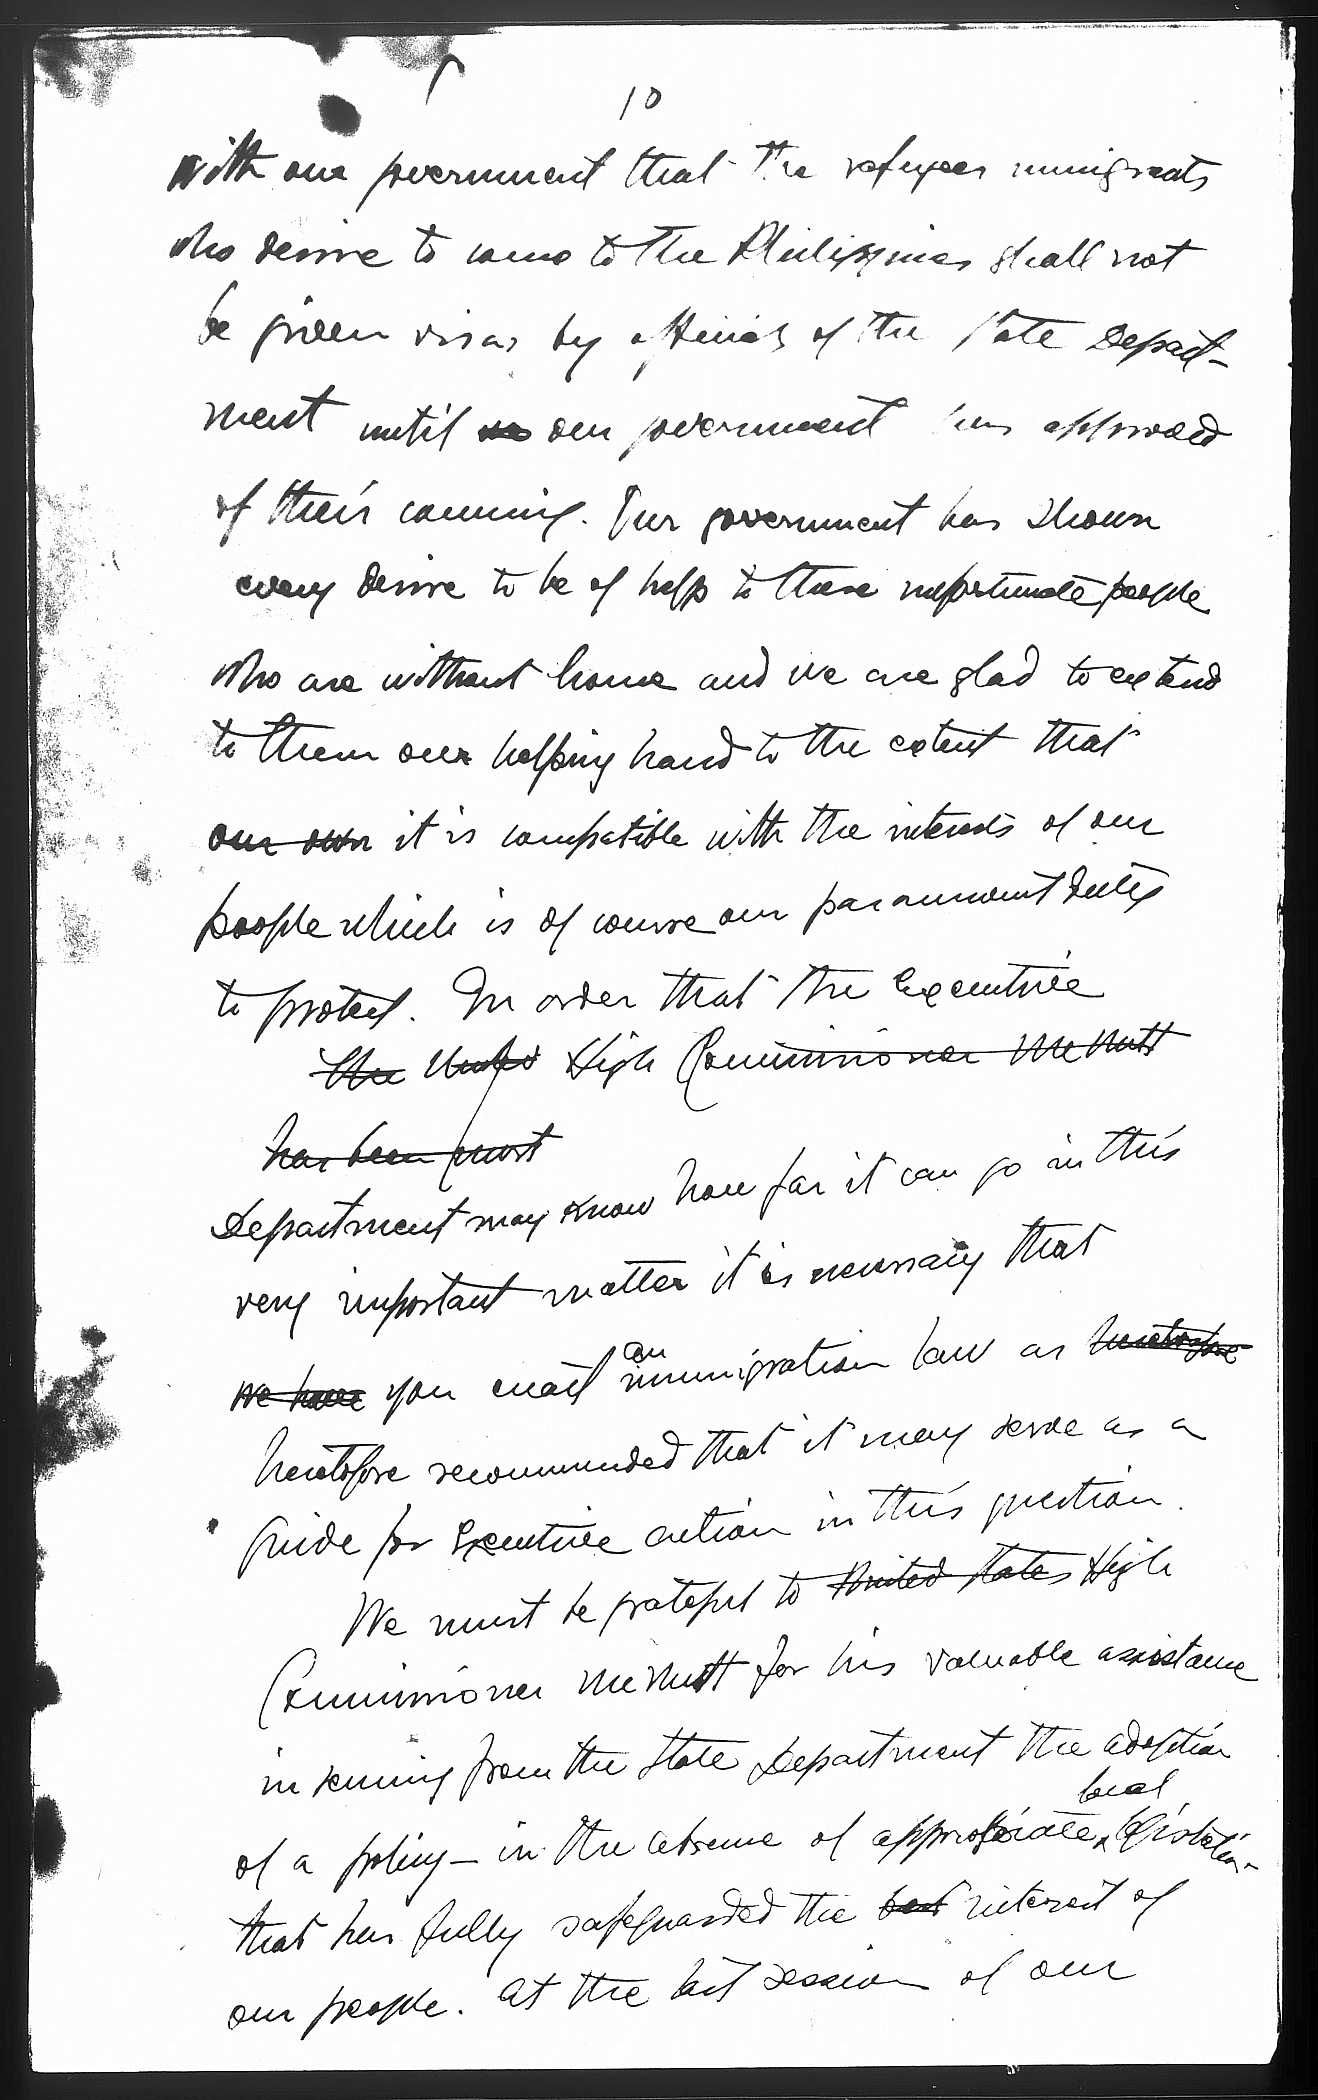 10
with our government that the refugees inmigrants
who desire to come to the Philippines shall not
be given visas by officials of the State Depart-
ment until our government has approved
of their comming. Our government has shown
every desire to be of help to these unfortunate people
who are without home and we are glad to extend
to them our helping hand to the extent that
our own it is compatible with the interests of our
people which is of course our paramount duty
to protect. In order that the Executive
The High Commissioner McNutt
has been most
Department may know how far it can go in this
very important matter it is necessary that
we have you enact an immigration law as heretofore
heretofore recommended that it may serve as a
guide for Executive action in this question.
We must be grateful to United States High
Commissioner McNutt for his valuable assistance
in securing from the State Department the adoption
local
of a policy — in the absence of appropriate legislation —
that has fully safeguarded the best interest of
our people. At the last session of our